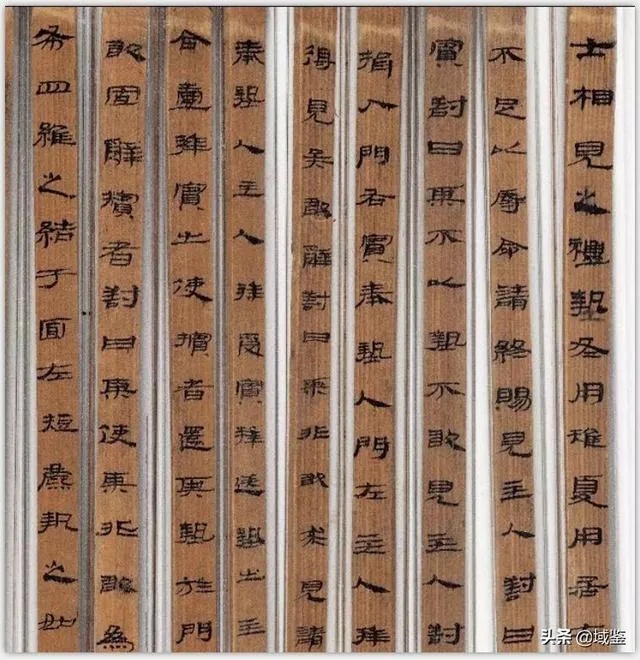 士相見之禮摯冬用雉夏用居
不足以辱命請終賜見主人對曰
賓對曰某不以摯不敢見主人對
揖入門右賓奉摯入門左主人拜
得見矣敢辭對曰某非敢求見請
奉摯入主人拜受賓拜送摯出主
命壹拜賓出使擯者還其摯於門
敢固辭擯者對曰某使某非敢為
布四維之結于面左麛執之如
头条 @域鉴